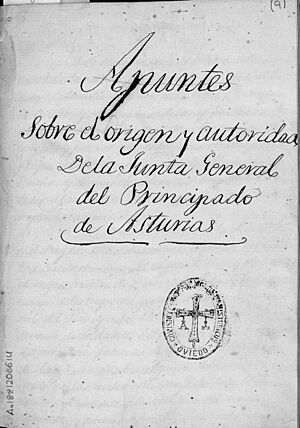 (9)
Apuntes
Sobre el origen y autoridad
De la Junta General
del Principado
de Asturias
OVIEDO
A-1881206614